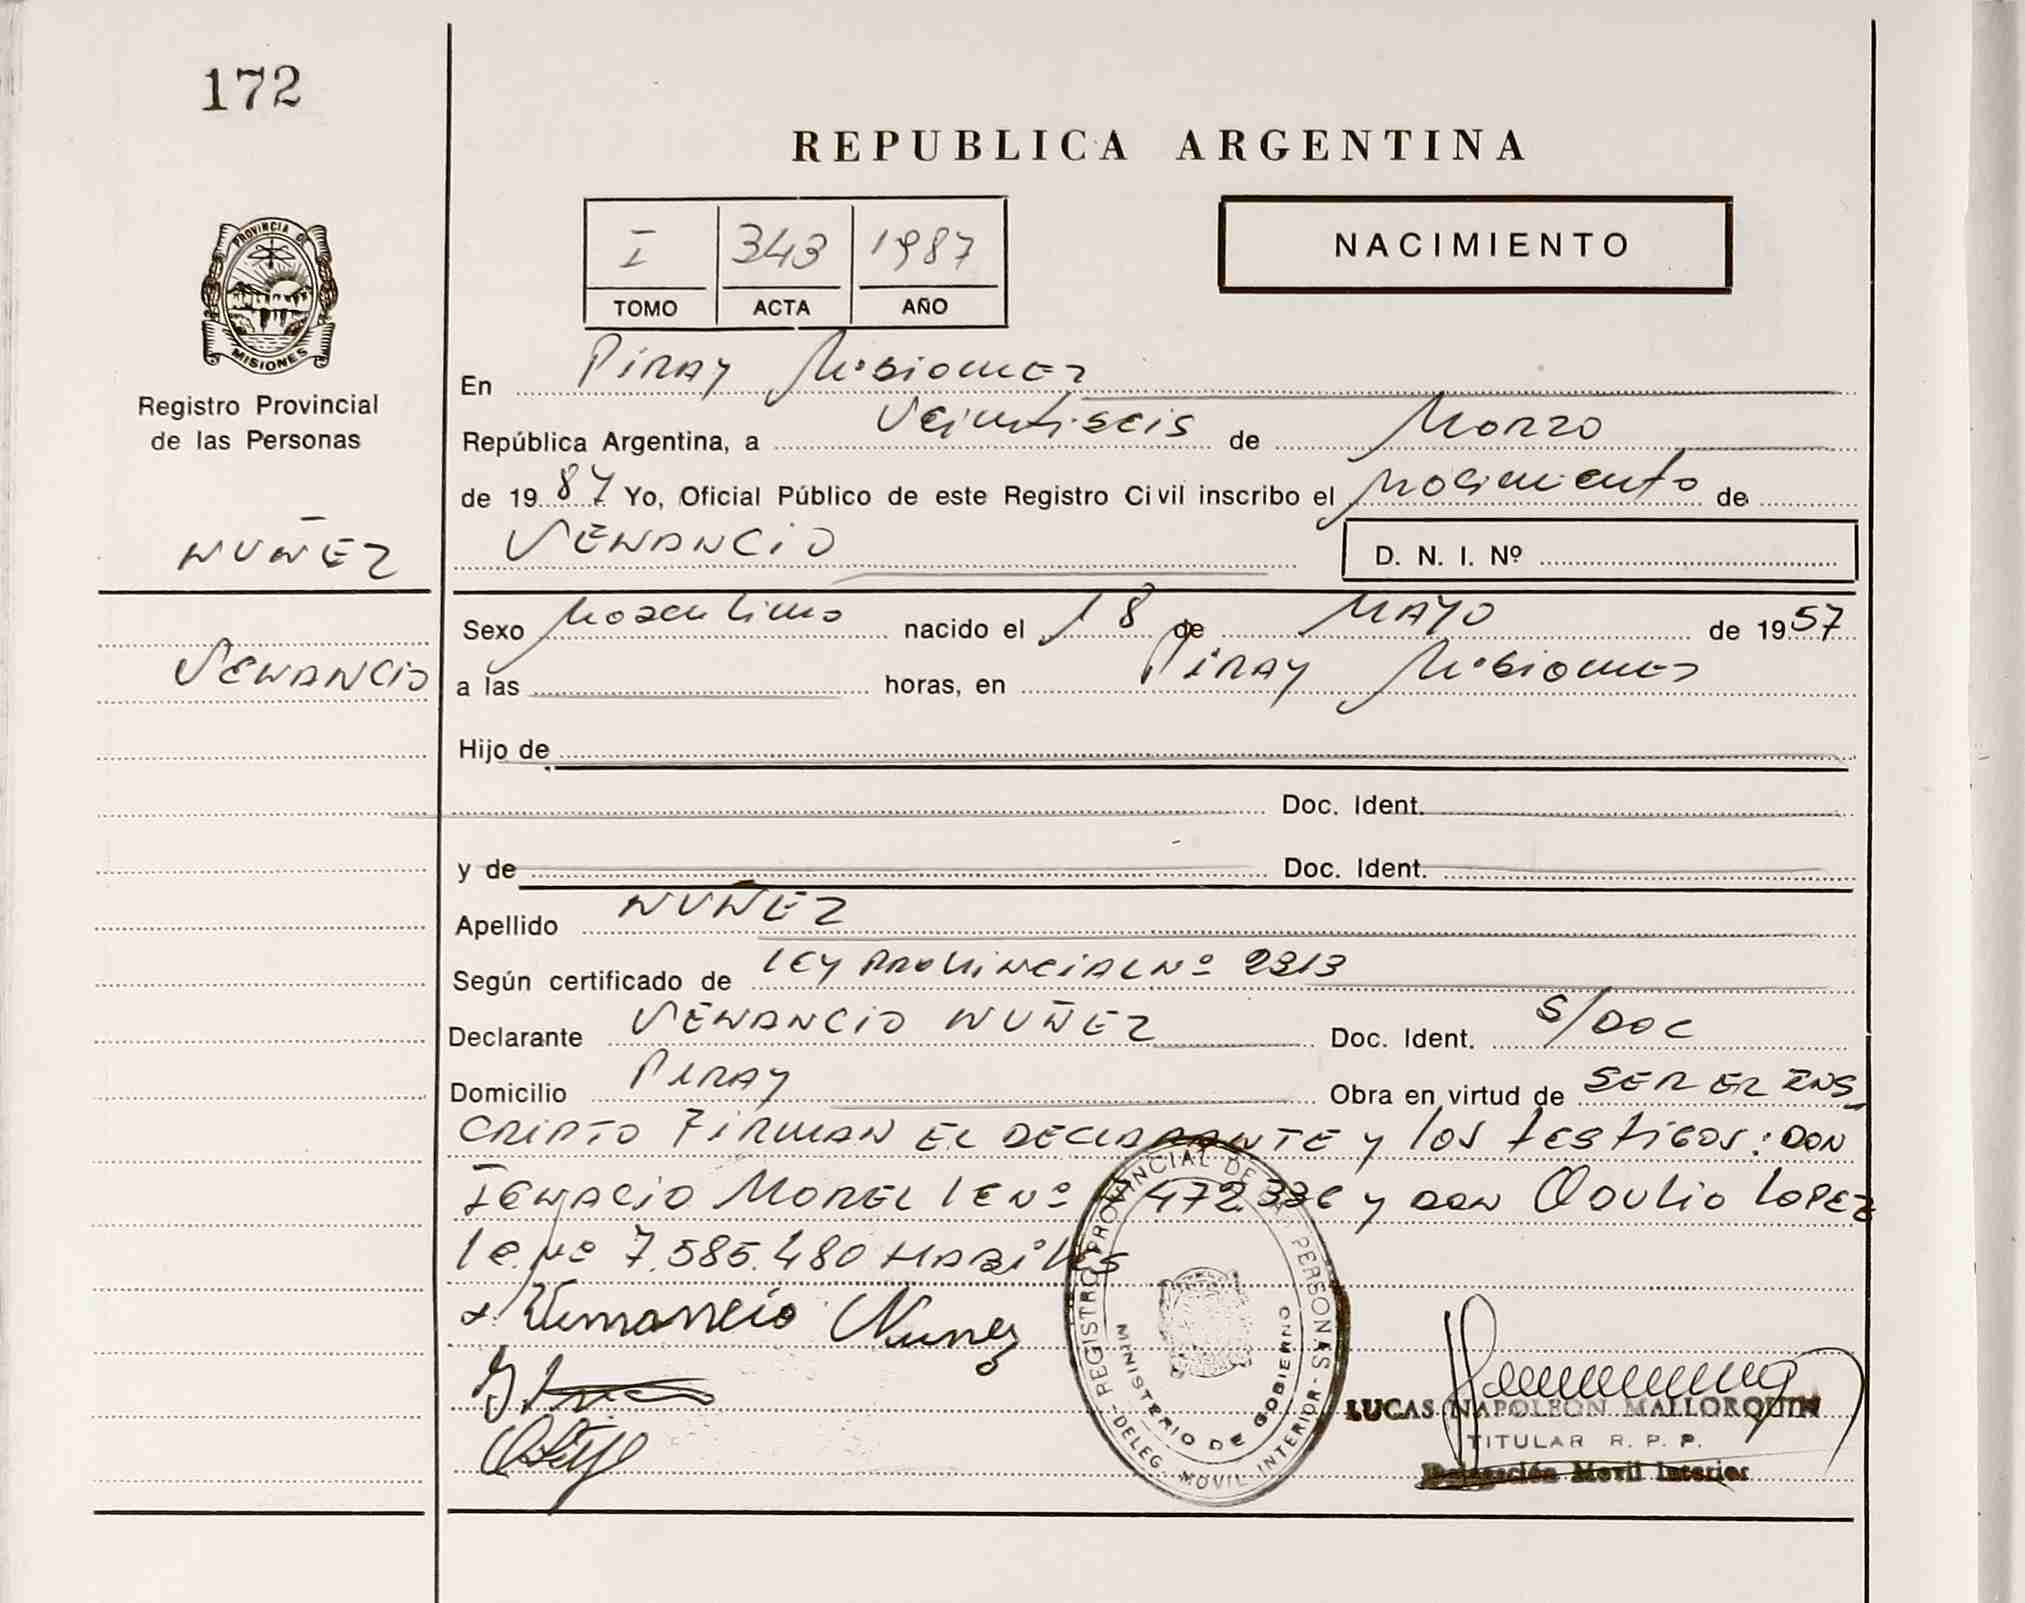 172
REPUBLICA ARGENTINA
I 343 1987
TOMO ACTA AÑO
NACIMIENTO
PROVINCIA DE
MISIONES
Registro Provincial
de las Personas
NUÑEZ
VENANCIO
En Piray Misiones
República Argentina, a Veintiseis de Marzo
de 19 87 Yo, Oficial Público de este Registro Civil inscribo el Nacimiento de
VENANCIO D. N. I. Nº
Sexo Masculino nacido el 18 de MAYO de 19 57
a las horas, en Piray Misiones
Hijo de
Doc. Ident.
y de Doc. Ident.
Apellido NUÑEZ
Según certificado de LEY PROVINCIAL Nº 2313
Declarante VENANCIO NUÑEZ Doc. Ident. S/DOC
Domicilio PIRAY Obra en virtud de SER EL INS_
CRIPTO FIRMAN EL DECLARANTE y los testigos: DON
IGNACIO MOREL LE Nº 472.336 y DON Obulio LOPEZ
le. Nº 7.585.480 HABILES
Venancio Nunez
REGISTRO PROVINCIAL DE LAS PERSONAS
MINISTERIO DE GOBIERNO
DELEG. MOVIL INTERIOR
LUCAS NAPOLEON MALLORQUIN
TITULAR R. P. P.
Delegación Movil Interior